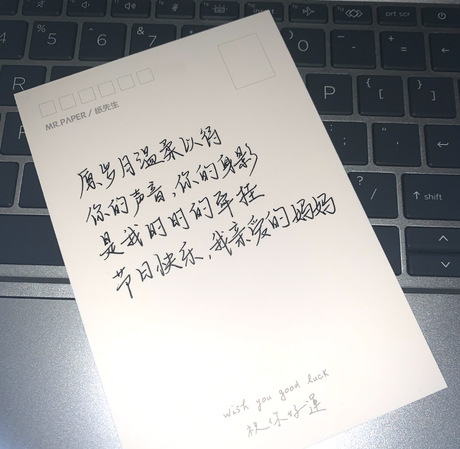 insert
prt scr
5
6
7
0
-
+
=
P
{
[
}
]
shift
MR.PAPER / 纸先生
愿岁月温柔以待
你的声音,你的身影
是我时时的牵挂
节日快乐,我亲爱的妈妈
wish you good luck
祝你好運